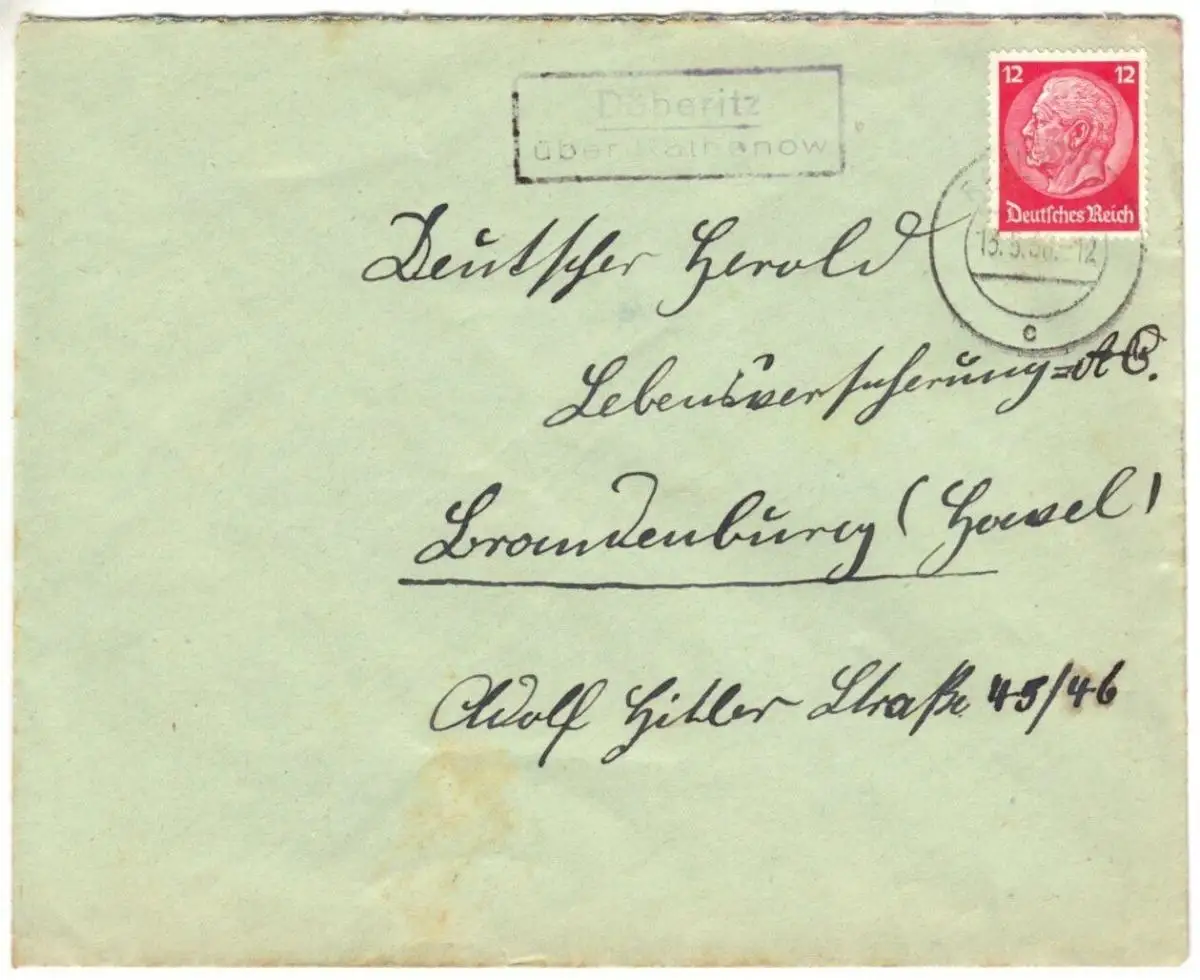 Döberitz
über Rathenow
12 12
Deutsches Reich
12
c
Deutscher Herold
Lebensversicherung=AG.
Brandenburg (Havel)
Adolf Hitler Straße 45/46